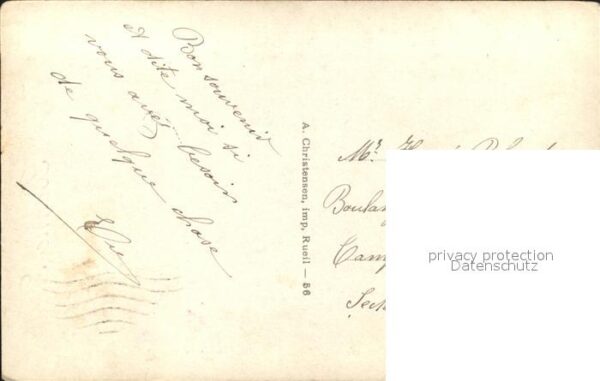 Bon souvenir
et dite moi si
vous avez besoin
de quelque chose
A. Christensen, imp, Rueil — 86
Mr.
privacy protection
Datenschutz